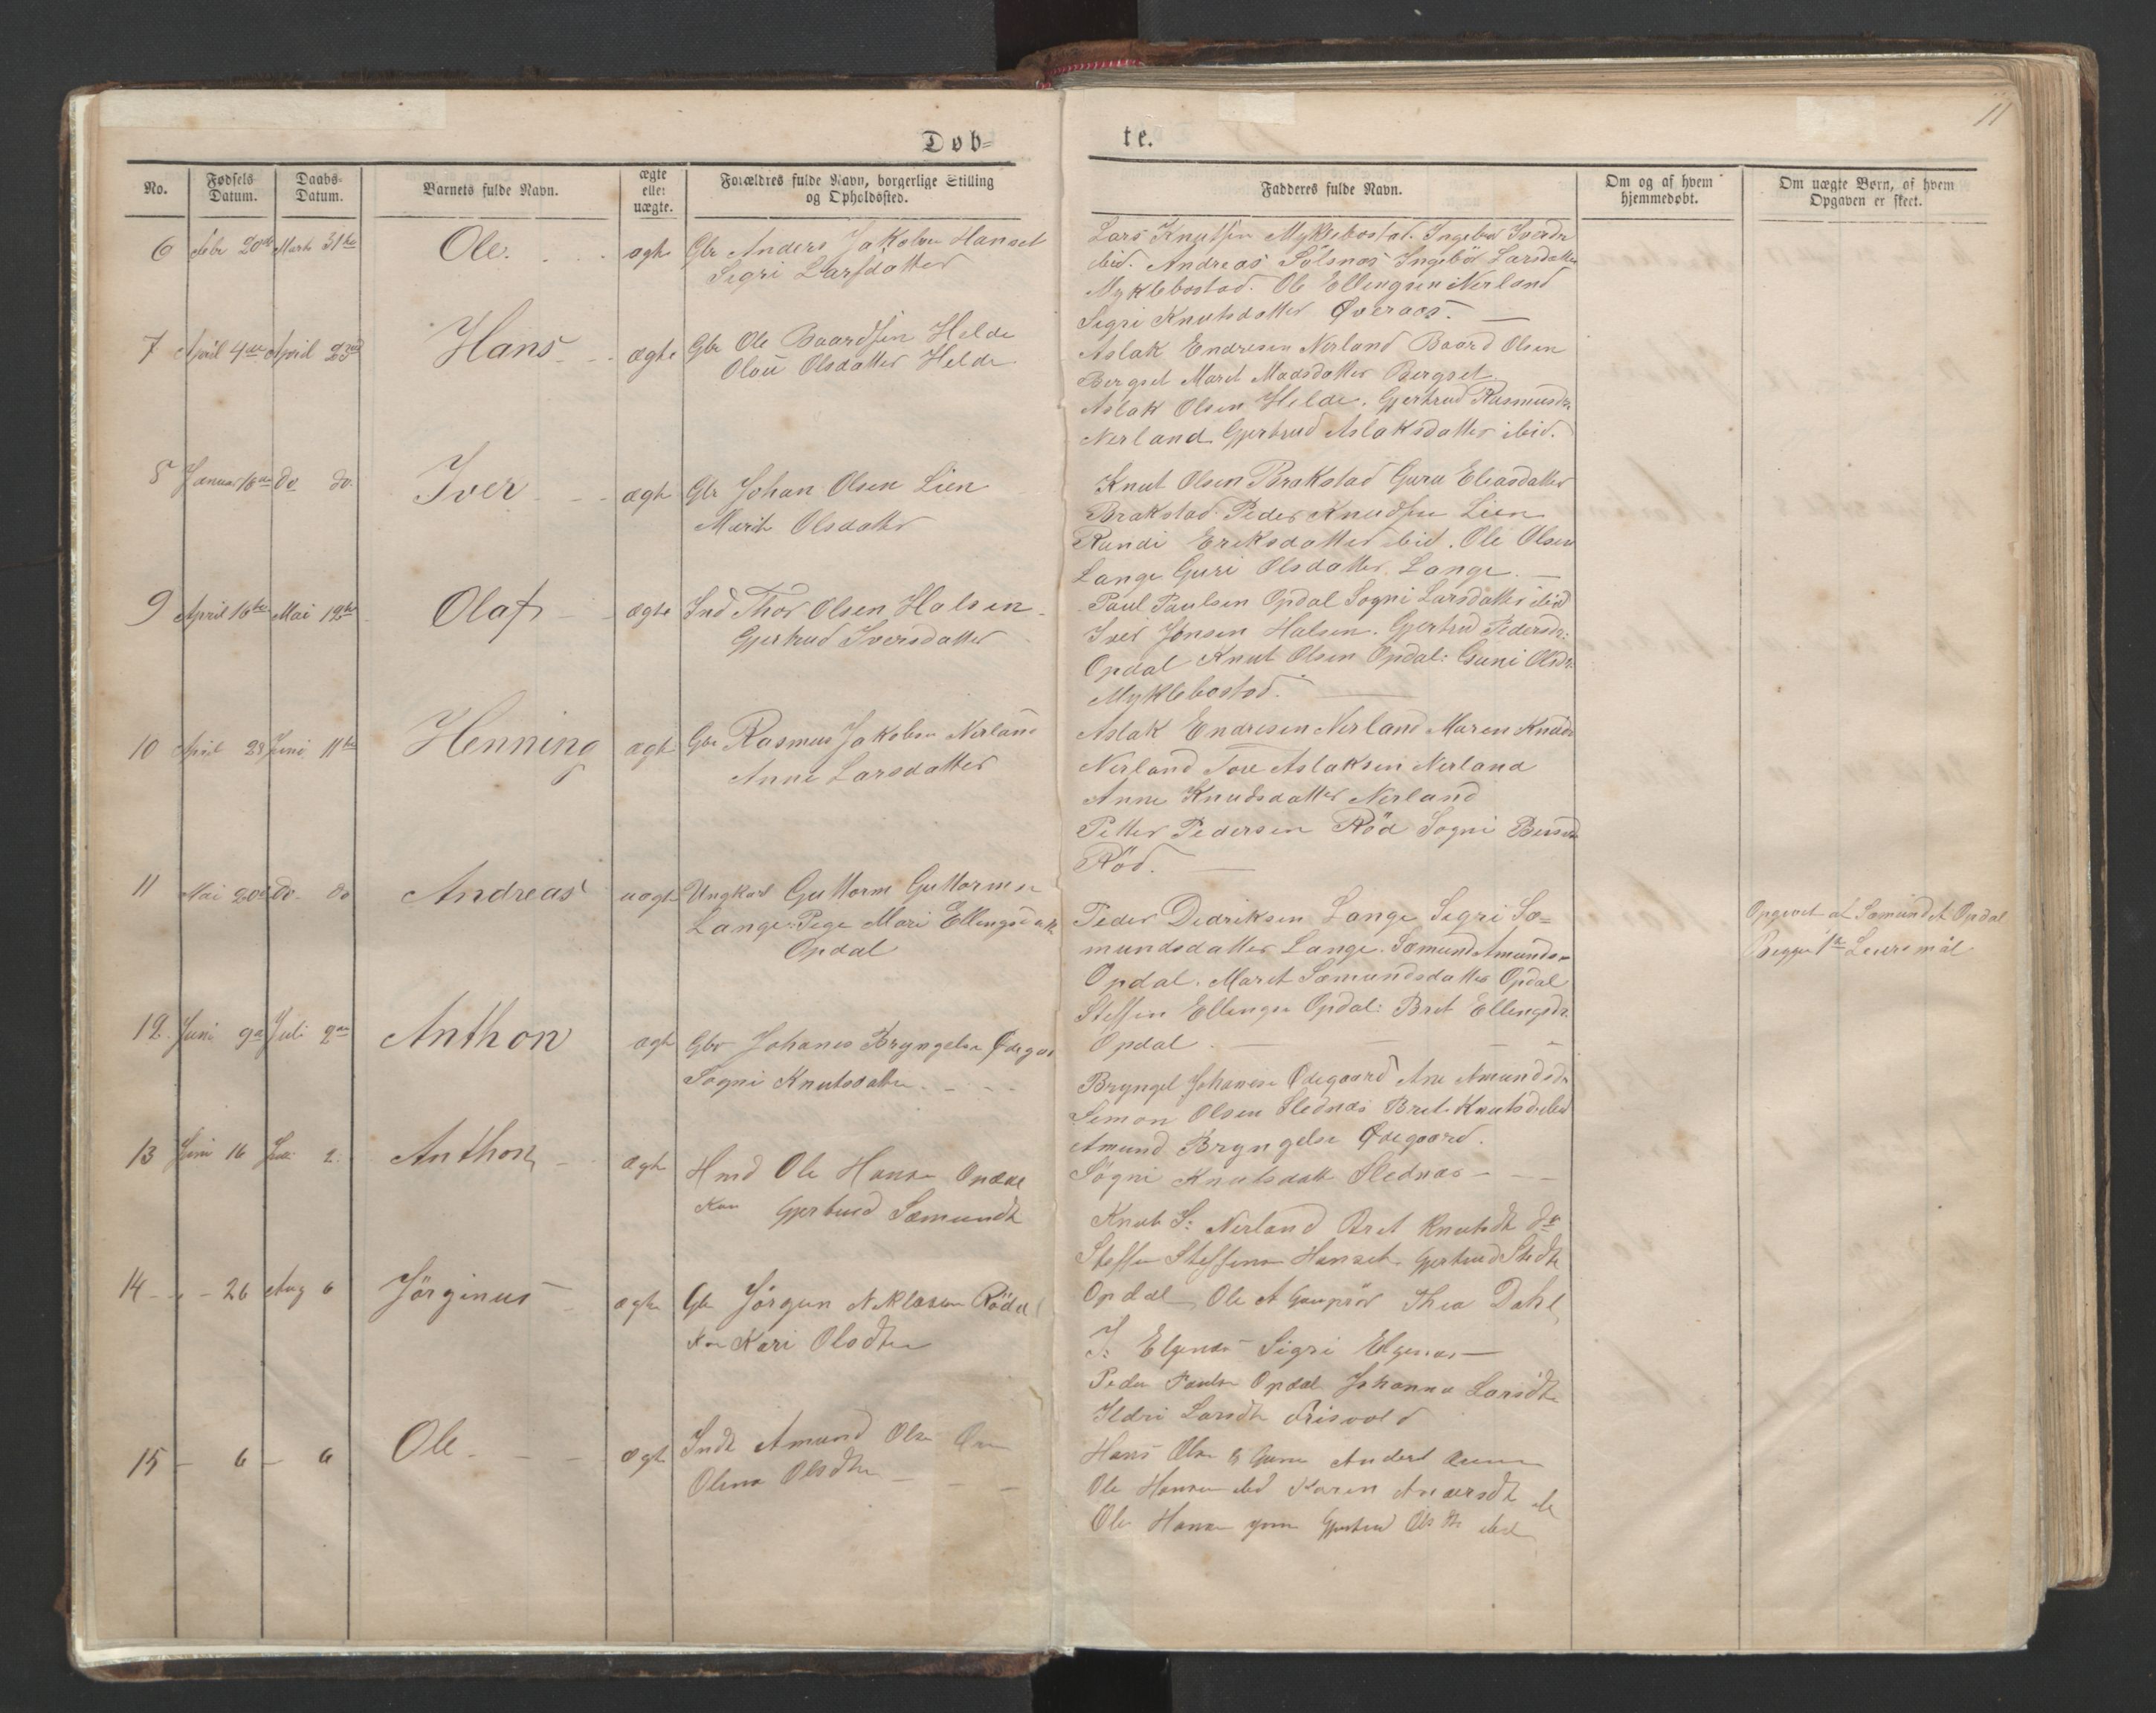 11
Døb=
te.
No.
Fødsels
Datum.
Daabs-
Datum.
Barnets fulde Navn.
ægte
eller
uægte.
Forældres fulde Navn, borgerlige Stilling
og Opholdssted.
Fadderes fulde Navn.
Om og af hvem
hjemmedøbt.
Om uægte Børn, af hvem
Opgaven er skeet.
6 Febr 20 Marts 31te Ole. ægte Gbr Anders Jakobsen Hanset
Segri Larsdatter
Lars Knutsen Myklebostad. Ingebor
ibid. Andreas Sölsnæs Ingebör Larsdatter
Myklebostad. Ole Ellingsen Nerland
Segri Knutsdatter Øveraas.
7 April 4de April 23 Hans ægte Gbr Ole Baardsen Helde
Olau Olsdatter Helde
Aslak Endresen Nerland Baard Olsen
Bergset Maret Madsdatter Bergset
Aslak Olsen Helde. Gjertrud Rasmusdr
Nerland Gjertrud Aslaksdatter ibid.
Januar 16 do do. Iver ægte Gbr Johan Olsen Lien
Marit Olsdatter
Knut Olsen Brakstad Guru Eliasdatter
Brakstad. Peder Knudsen Lien
Randi Eriksdatter ibid. Ole Olsen
Lange Guri Olsdatter. Lange.
9 April 16de Mai 19de Olaf ægte Ind Thor Olsen Halsen
Gjertrud Iversdatter
Paul Paulsen Opdal Sogni Larsdatter ibid
Iver Jonsen Halsen. Gjertrud Pedersdr:
Opdal Knut Olsen Opdal: Guni Olsdr:
Myklebostad.
10 April 28 Juni 11te Henning ægte Gbr Rasmus Jakobsen Nerland
Anne Larsdatter
Aslak Endresen Nerland Maren Knuds
Nerland Tore Aslaksen Nerland
Anne Knudsdatter Nerland
Petter Pedersen Röd Sogni
Röd.
11 Mai 20 do. do Andreas uægte Ungkarl Guttorm Guttormsen
Lange. Pige Mari Ellingsdatter
Opdal
Peder Didriksen Lange Segri Sæ=
mundsdatter Lange. Sæmund Amunds
Opdal. Maret Sæmundsdatter Opdal
Steffen Ellingsen Opdal: Bret Ellingsdr.
Opdal.
Opgivet af Sæmund A Opdal
Begges 1te Leiermål
12. Juni 9de Juli 2den Anthon ægte Gbr Johanes Bryngelsen Ødegaa
Sogni Knutsdatter
Bryngel Johanesen Ødegaard Ane Amundsdr
Simon Olsen Slednæs Bret Knutsdr ibid
Amund Bryngelsen Ødegaard.
Sögni Knutsdatt Slednæs
13 Juni 16 Juli 2 Anthon ægte Hmd Ole Hansen Opdal
Kone Gjertrud Sæmundsdt
Knut S: Nerland Bret Knutsdt do
Steffen Steffensen Hanset Gjertrud
Opdal Ole A Thea Dahl
14 26 Aug 6 Jörginus ægte Gbr Jörgen Niklasen Röd
Kone Kari Olsdtr
J: Elgenæs Sigri Elgenæs
Peder Paulsen Opdal Johanna Larsdtr
Ildri Larsdtr Frisvold
15 6 6 Ole ægte Inds Amund Olsen
Olina Olsdtr
Hans Olsen
Ole Hansen ibid Karen Andersdt
Ole Hansen Gjertrud Olsdtr ibid